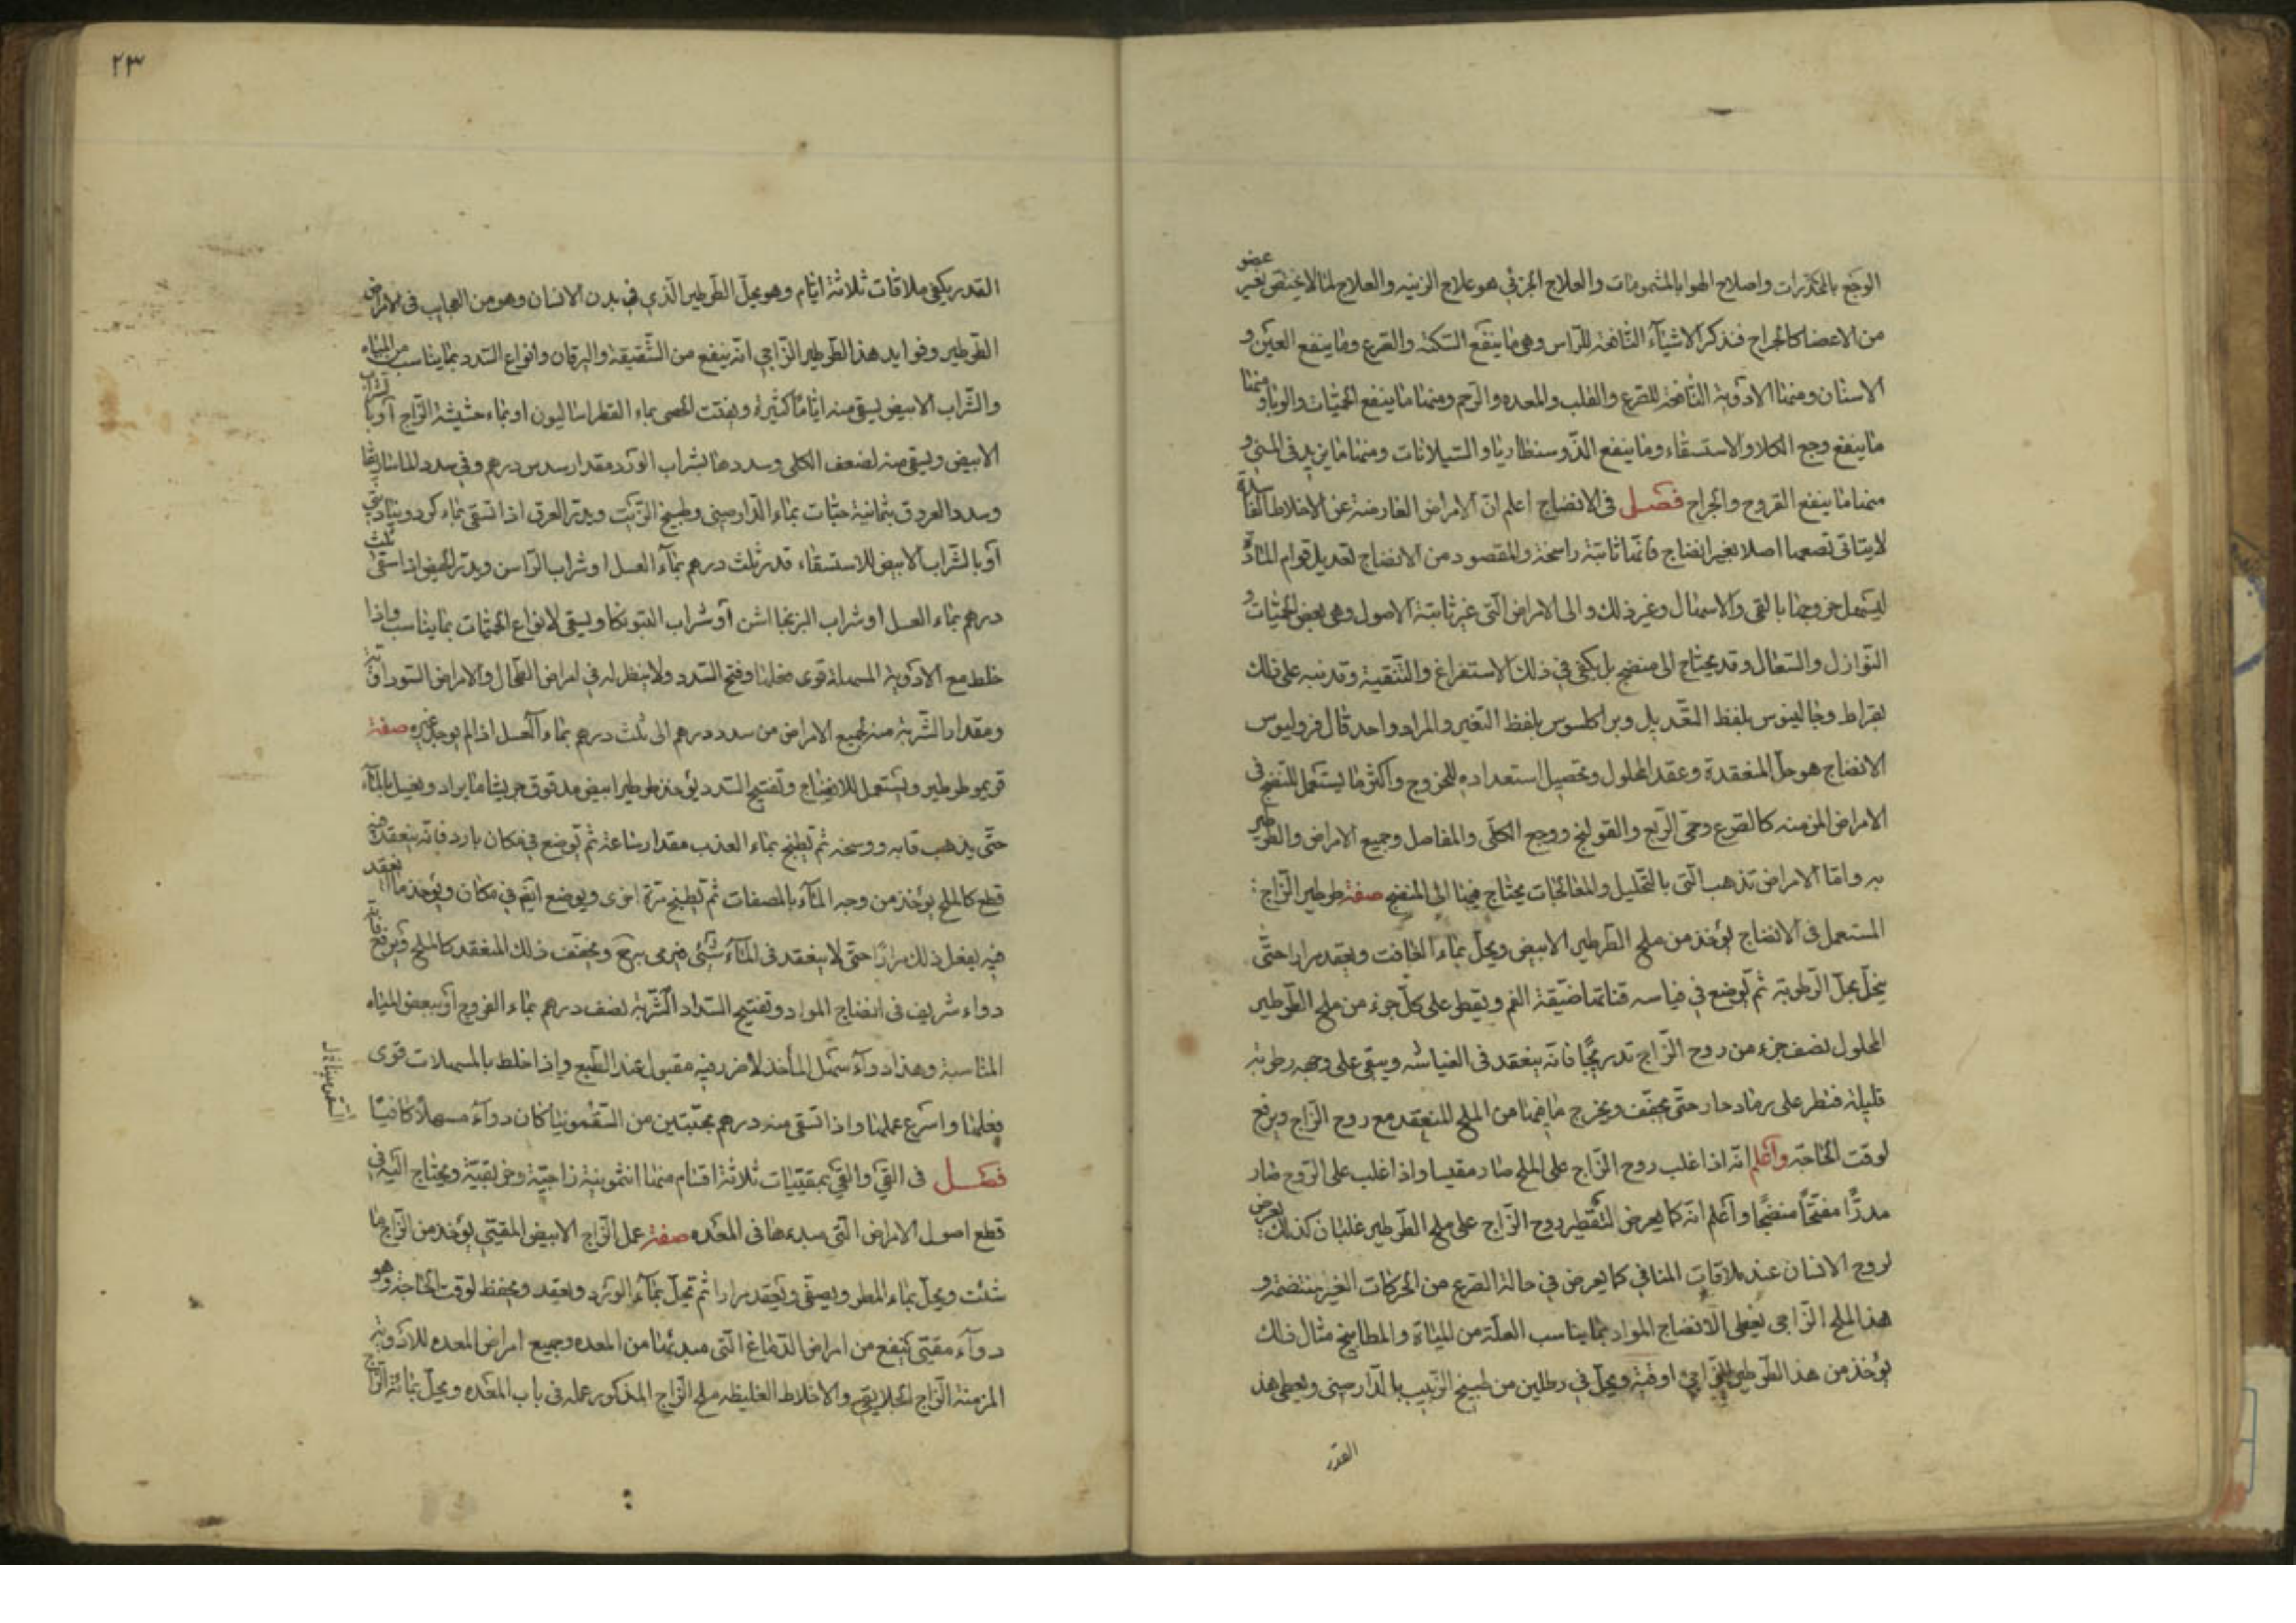 الوجع بالمخدرات واصلاح الهوا بالمشمومات والعلاج الجزئي هو علاج الزينه والعلاج لما لا يختص بغير عضو
من الاعضا كالجراح فنذكر الاشياء النافعة للراس وهى ما ينفع السكته والصرع وما ينفع العين و
الاسنان ومنها الادوية النافعة للصرع والقلب والمعده والرحم ومنها ما ينفع الحميات والوبا ومنها
ما ينفع وجع الكلا والاستسقاء وما ينفع الذوسنطاريا والسيلانات ومنها ما يزيد فى المنى و
منها ما ينفع القروح والجراح فصل فى الانضاج اعلم ان الامراض العارضة عن الاخلاط الفاسدة
لا يتاتى قصعها اصلا بغير انضاج فانها ثابتة راسخة والمقصود من الانضاج تعديل قوام المادة
ليسهل خروجها بالقى والاسهال وغير ذلك والى الامراض التى غير ثابتة الاصول وهى بعض الحميات و
النوازل والسعال وقد يحتاج الى منضج بل يكفى فى ذلك الاستفراغ والتنقية وقد نبه على ذلك
بقراط وجالينوس بلفظ التعديل وبراكلسوس بلفظ التغير والمراد واحد قال فروليوس
الانضاج هو حل المنعقدة وعقد المحلول وتحصيل استعداده للخروج واكثر ما يستعمل المنضج فى
الامراض المزمنه كالصرع وحمى الربع والقولنج ووجع الكلى والمفاصل وجميع الامراض والطرطير
يه واما الامراض تذهب التى بالتحليل والمعالجات يحتاج فيها الى المنضج صفة طرطير الزاج
المستعمل فى الانضاج يؤخذ من ملح الطرطير الابيض ويحل بماء الغافت ويعقد مرارا حتى
ينحل بمحل الرطوبة ثم يوضع في فياسه قنانها ضيقة الفم ويقطر على كل جزء من ملح الطرطير
المحلول نصف جزء من روح الزاج تدريجا فانه ينعقد فى الفياشه ويبقى على وجهه رطوبة
قليلة فتطر على رماد حار حتى يجفف ويخرج ما فيها من الملح المنعقد مع روح الزاج ويرفع
لوقت الحاجة واعلم انه اذا غلب روح الزاج على الملح صار مقيسا واذا غلب على الروح صار
مدرا مفتحا منضجا واعلم انه كما يعرض لتقطير روح الزاج على ملح الطرطير غلبان كذلك يعرض
لروح الانسان عند ملاقات المنافي كما يعرض فى حالة الصرع من الحركات الغير منتضمة و
هذا الملح الزاجى يعطى الانضاج المواد بما يناسب العلة من المياة والمطابيخ مثال ذلك
يؤخذ من هذا الطرطير الزاجى اوقية ويحل في رطلين من طبيخ الزبيب بالدارصينى ويعطى هذ
القدر
٢٣
القدر يكفى ملاقات ثلاثة ايام وهو يحل الطرطير الذي فى بدن الانسان وهو من العجايب فى الامراض
الطرطير وفوايد هذا الطرطير الزاجى انه ينفع من الشقيقة واليرقان وانواع السدد بما يناسب من المياه
والشراب الابيض يسقى منه اياما كثيرة ويفتت الحصى بماء القطراساليون او بماء حشيشة الزاج او بالشراب
الابيض ويسقى منه لضعف الكلى وسددها بشراب الورد مقدار سدس درهم وفى سدد الماساريقا
وسدد العروق بثمانية حبات بماء الدارصينى وطبيخ الزبيب ويدر العرق اذا تسقى بماء كردوبنادقى
او بالشراب الابيض للاستسقاء قدر ثلث درهم بماء العسل او شراب الراسن ويدر الحيض اذا سقى ثلث
درهم بماء العسل او شراب البرنجاشن او شراب البتونكا ويسقى لانواع الحميات بما يناسب واذا
خلط مع الادوية المسهلة قوى فعلها وفتح السدد ولا ينظر له في امراض الطحال والامراض السوداوية
ومقدار الشربة منه لجميع الامراض من سدد درهم الى ثلث درهم بماء العسل اذا لم يوجد غيره صفة
قريمو طرطير ويستعمل للانضاج وتفتيح السدد يؤخذ طرطير ابيض مدقوق جريشا ما يراد ويغسل بالماء
حتى يذهب قابه ووسخه ثم تطبخ بماء العذب مقدار ساعة ثم توضع فى مكان بارد فانه ينعقد منه
قطع كالملح يؤخذ من وجه الماء بالمصفات ثم يطبخ مرة اخرى ويوضع ايضم فى مكان ويؤخذ ما انعقد
فيه يفعل ذلك مرارا حتى لا ينعقد فى الماء شىء فيرمى ويجفف ذلك المنعقد كالملح ويرفع فانه
دواء شريف فى انضاج المواد وتفتيح السداد الشربة نصف درهم بماء الفروج او ببعض المياه
المناسبة وهذا دواء سهل المأخذ لا ضرر فيه مقبول عند الطبع واذا خلط بالمسهلات قوى
فعلها واسرع عملها واذا تسقى منه درهم بحبتين من السقمونيا كان دواء مسهلا كافيا
فصل فى القى والقى بمقييات ثلاثة اقسام منها انتمونية زاجية وخربقية ويحتاج اليه فى
قطع اصول الامراض التى مبدءها فى المعده صفة عمل الزاج الابيض المقيى يؤخذ من الزاج ما
شئت ويحل بماء المطر ويصفى ويعقد مرارا ثم تحل بماء الورد وتعقد ويحفظ لوقت الحاجة وهو
دواء مقيى ينفع من امراض الدماغ التى مبدئها من المعده وجميع امراض المعده للادوية
المزمنة الزاج الجلايقى والاخلاط الغليظه ملح الزاج المذكور عمله فى باب المعده ويحل بمائة الزاج